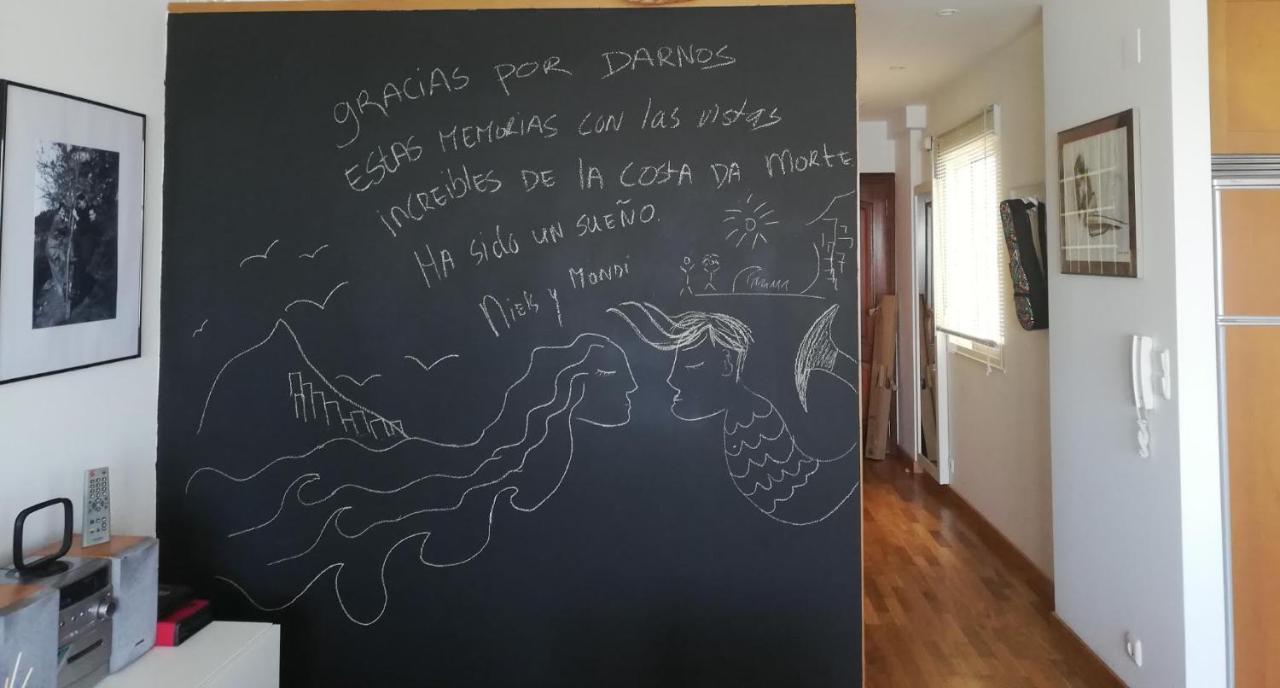 GRACIAS POR DARNOS
ESTAS MEMORIAS CON las vistas
INCREIBLES DE lA COSTA DA MORTE
HA sido UN SUEÑO.
Niels y Mandi